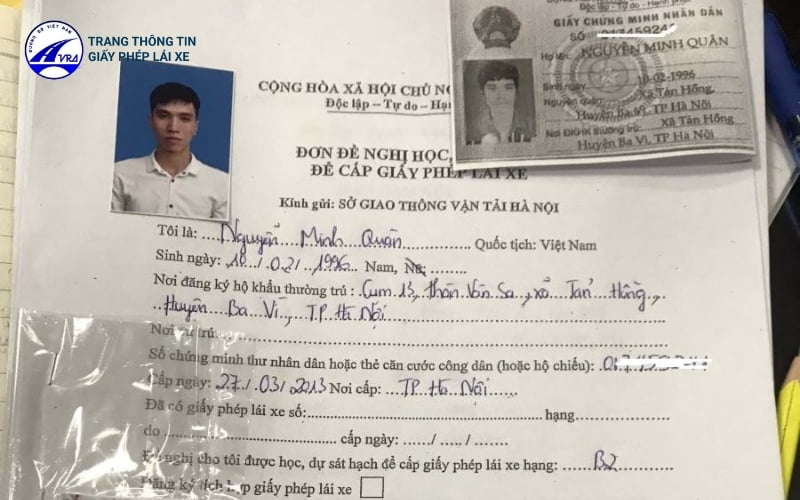 ĐƯỜNG BỘ VIỆT NAM
VRA
TRANG THÔNG TIN
GIẤY PHÉP LÁI XE
Độc lập - Tự do - Hạnh phúc
GIẤY CHỨNG MINH NHÂN DÂN
SỐ 017459244
Họ tên: NGUYỄN MINH QUÂN
Sinh ngày: 10-02-1996
Nguyên quán: Xã Tản Hồng,
Huyện Ba Vì, TP Hà Nội
Nơi ĐKHK thường trú: Xã Tản Hồng
Huyện Ba Vì, TP Hà Nội
CỘNG HÒA XÃ HỘI CHỦ
Độc lập – Tự do – Hạn
ĐƠN ĐỀ NGHỊ HỌC,
ĐỂ CẤP GIẤY PHÉP LÁI XE
Kính gửi: SỞ GIAO THÔNG VẬN TẢI HÀ NỘI
Tôi là: Nguyễn Minh Quân Quốc tịch: Việt Nam
Sinh ngày: 10/02/1996 Nam, Nữ:
Nơi đăng ký hộ khẩu thường trú: Cụm 13, thôn Vân Sa, xã Tản Hồng,
Huyện Ba Vì, TP Hà Nội
Nơi cư trú:
Số chứng minh thư nhân dân hoặc thẻ căn cước công dân (hoặc hộ chiếu):
Cấp ngày: 27/03/2013 Nơi cấp: TP Hà Nội
Đã có giấy phép lái xe số: hạng
do cấp ngày: / /
Đề nghị cho tôi được học, dự sát hạch để cấp giấy phép lái xe hạng: B2
Đăng ký tích hợp giấy phép lái xe